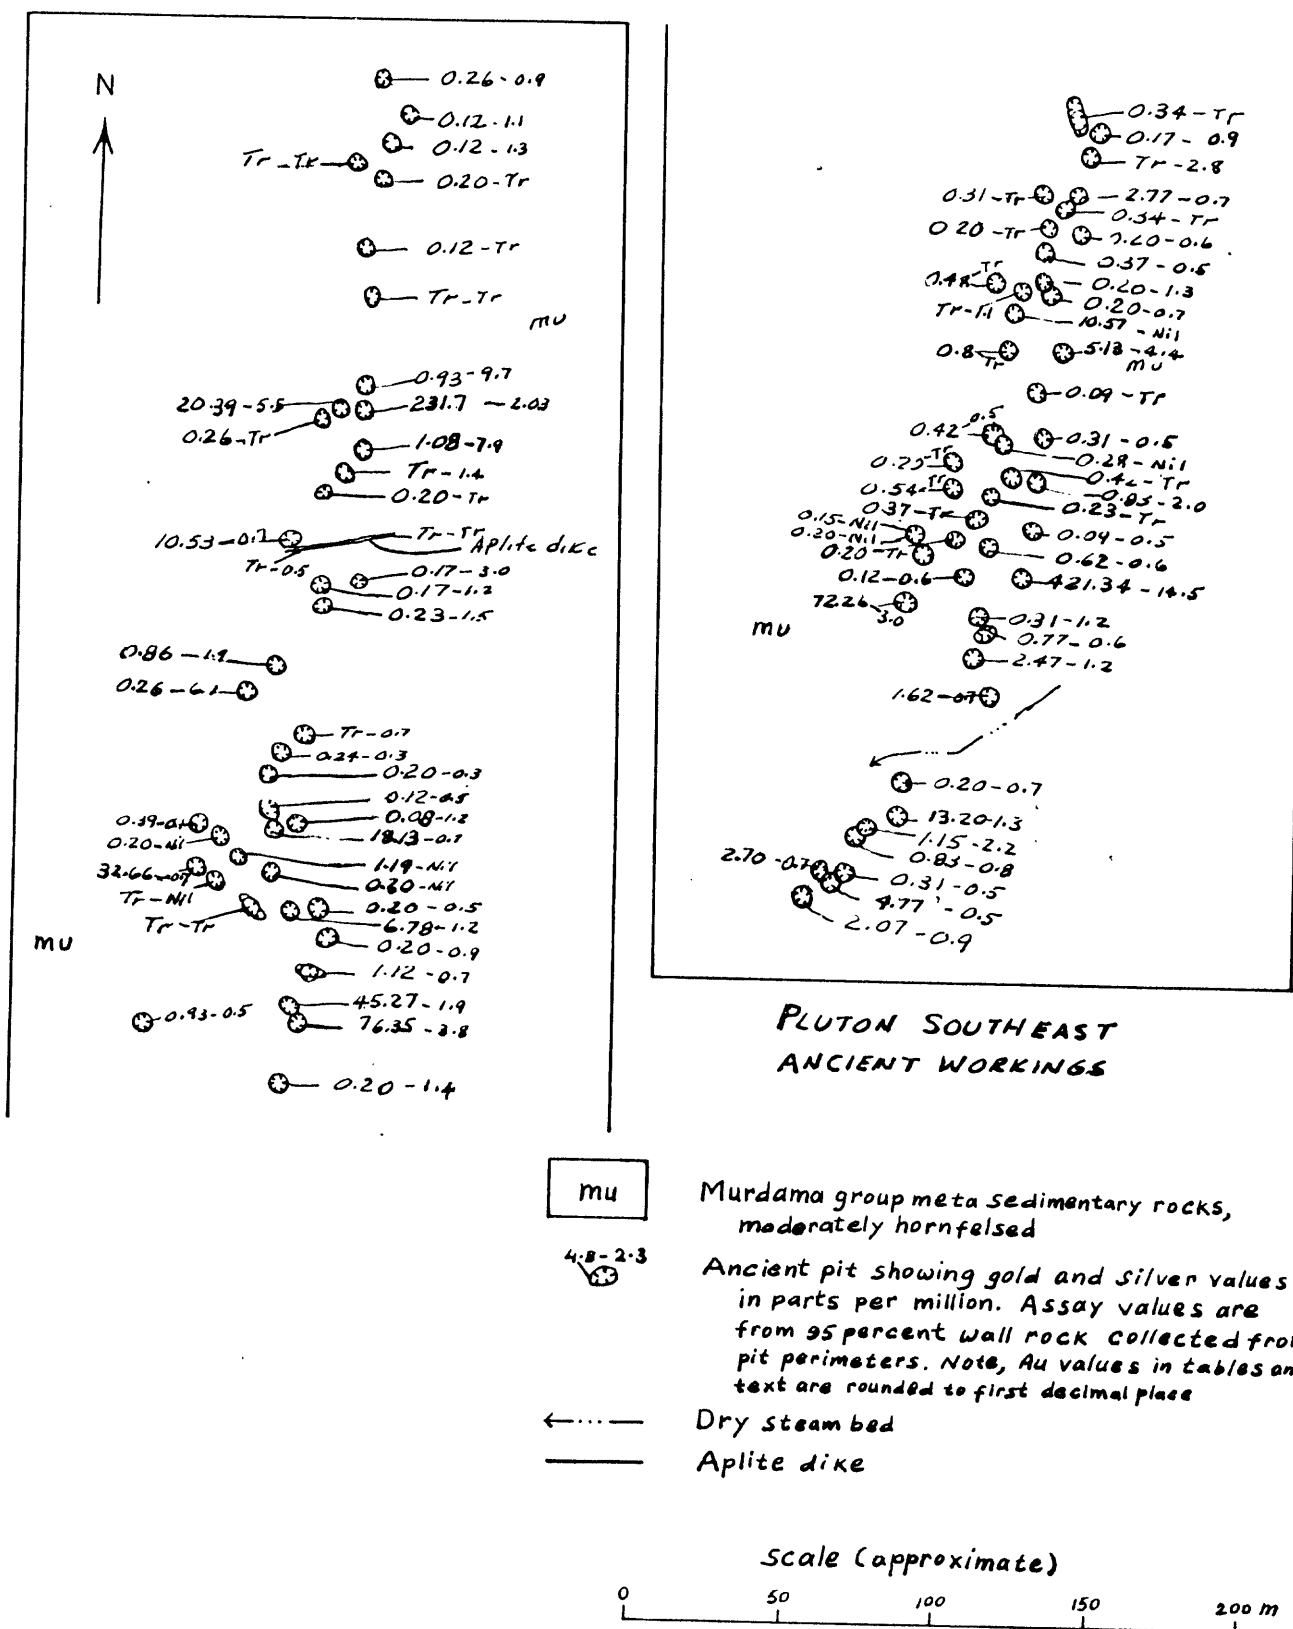 N
0.26-0.9
0.12-1.1
0.12-1.3
Tr-Tr
0.20-Tr
0.12-Tr
Tr-Tr
mu
0.93-9.7
20.39-5.5
231.7-2.03
0.26-Tr
1.08-7.9
Tr-1.4
0.20-Tr
Tr-Tr
Aplite dike
Tr-0.5
0.17-3.0
0.17-1.2
0.23-1.5
0.26-6.1
Tr-0.7
0.24-0.3
0.20-0.3
0.12-0.5
0.08-1.2
18.13-0.7
0.20-Nil
1.19-Nil
0.20-Nil
Tr-Nil
Tr-Tr
0.20-0.5
6.78-1.2
mu
0.20-0.9
1.12-0.7
45.27-1.9
0.93-0.5
76.35-3.8
0.20-1.4
0.34-Tr
0.17-0.9
Tr-2.8
0.31-Tr
2.77-0.7
0.34-Tr
0.20-Tr
0.20-0.6
0.37-0.5
0.48-Tr
0.20-1.3
Tr-1.1
0.20-0.7
10.57-Nil
0.8-Tr
5.13-4.4
mu
0.09-Tr
0.42-0.5
0.31-0.5
0.28-Nil
0.54-Tr
0.83-2.0
0.23-Tr
0.37-Tr
0.15-Nil
0.20-Nil
0.09-0.5
0.20-Tr
0.62-0.6
0.12-0.6
421.34-14.5
72.26-3.0
mu
0.31-1.2
0.77-0.6
2.47-1.2
1.62-0.7
0.20-0.7
13.20-1.3
1.15-2.2
0.83-0.8
2.70-0.7
0.31-0.5
4.77-0.5
2.07-0.9
PLUTON SOUTHEAST
ANCIENT WORKINGS
mu
Murdama group meta sedimentary rocks,
moderately hornfelsed
4.8-2.3
Ancient pit showing gold and silver values
in parts per million. Assay values are
from 95 percent wall rock collected fro
pit perimeters. Note, Au values in tables an
text are rounded to first decimal place
Dry steam bed
Aplite dike
scale (approximate)
0 50 100 150 200 m